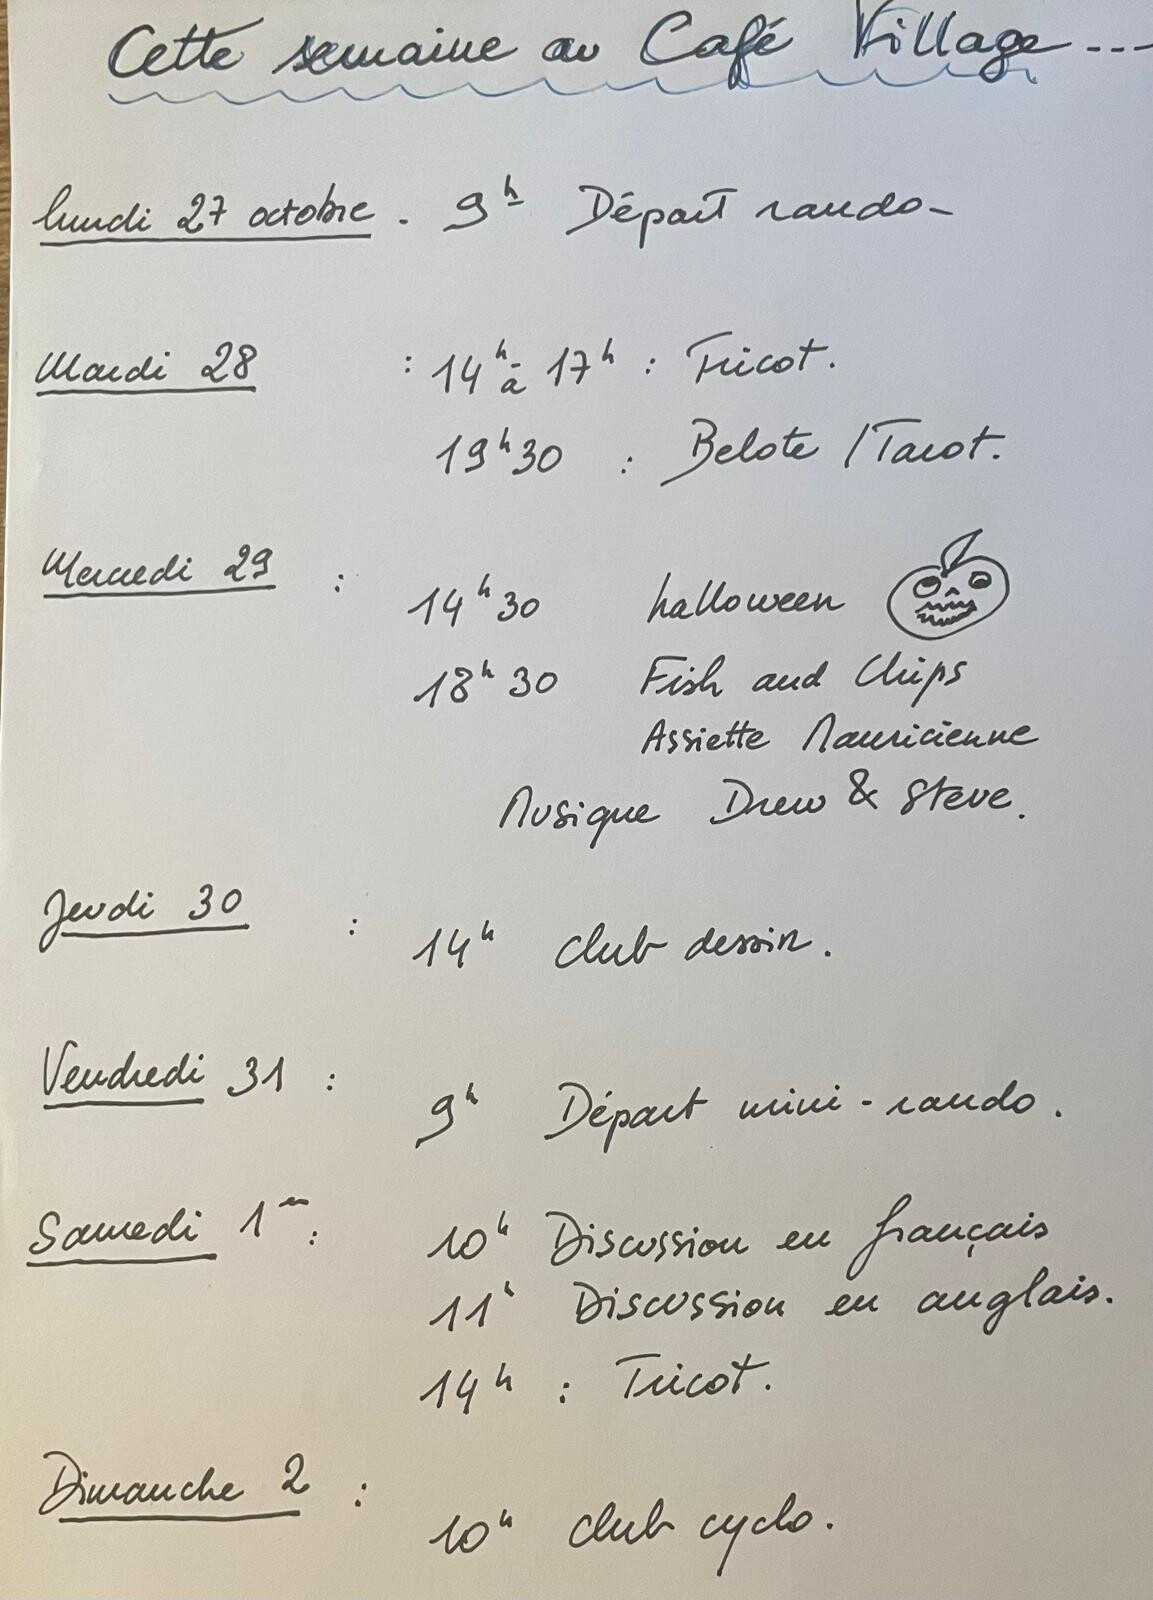 Cette semaine au Café Village ---
lundi 27 octobre . 9h Départ rando -
Mardi 28 : 14h à 17h : Tricot.
19h30 : Belote / Tarot.
Mercredi 29 : 14h30 halloween
18h30 Fish and Chips
Assiette Mauricienne
Musique Drew & Steve.
Jeudi 30 : 14h club dessin.
Vendredi 31 : 9h Départ mini-rando.
Samedi 1er : 10h Discussion en français
11h Discussion en anglais.
14h : Tricot.
Dimanche 2 : 10h club cyclo.